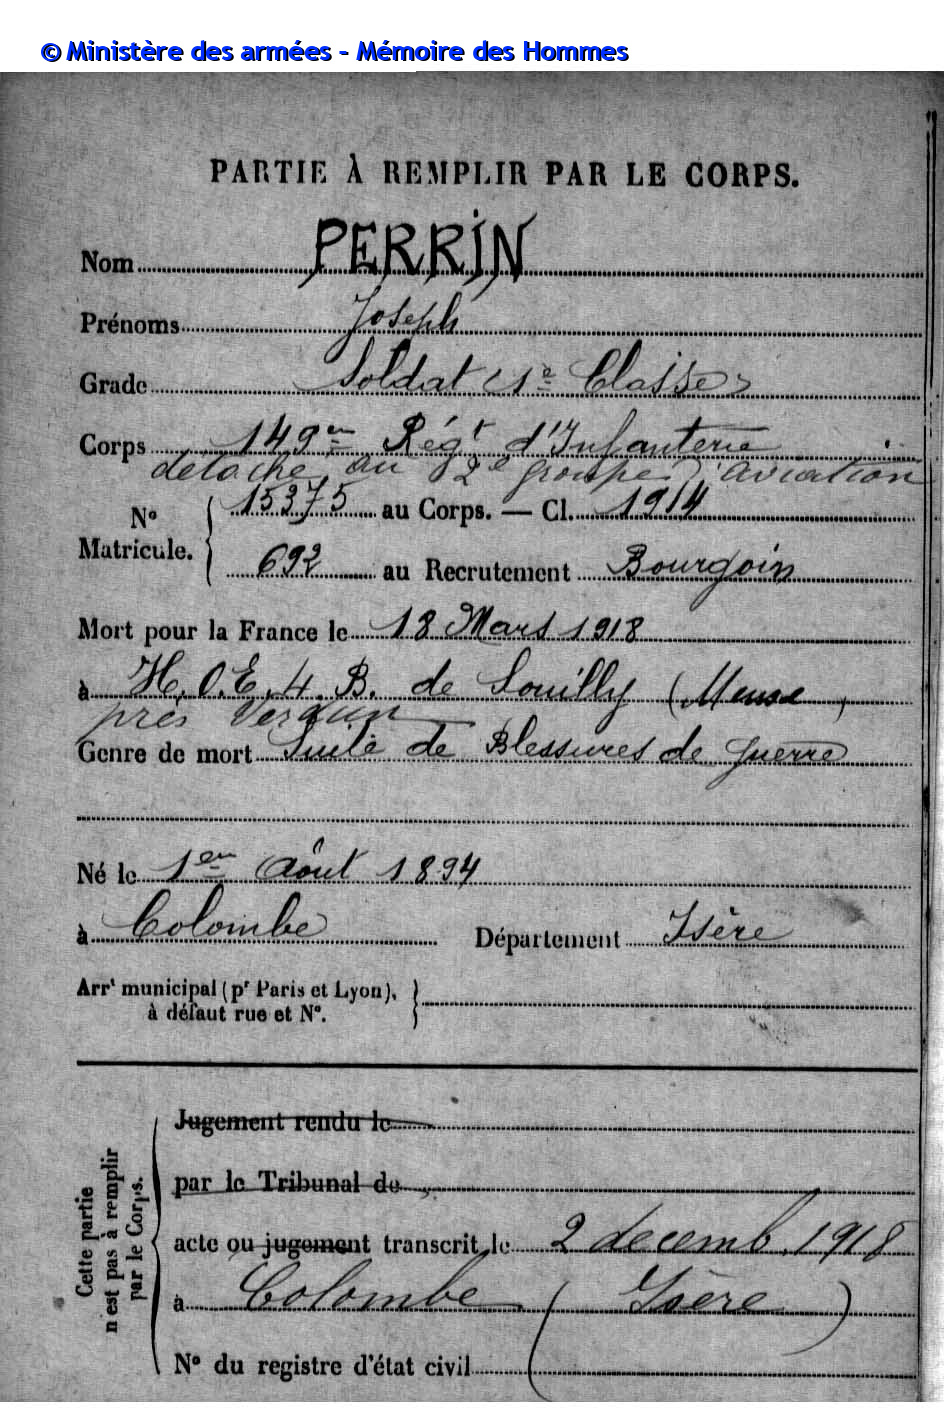 © Ministère des armées - Mémoire des Hommes
PARTIE À REMPLIR PAR LE CORPS.
Nom PERRIN
Prénoms Joseph
Grade Soldat (1e Classe)
Corps 149em Régt d'Infanterie
détaché au 2e groupe d'aviation
No Matricule. 15375 au Corps. — Cl. 1914
692 au Recrutement Bourgoin
Mort pour la France le 18 Mars 1918
à H.O.E. 4. B. de Souilly (Meuse)
près Verdun
Genre de mort Suite de Blessures de guerre
Né le 1er Août 1894
à Colombe Département Isère
Arrt municipal (pr Paris et Lyon),
à défaut rue et No.
Cette partie
n'est pas à remplir
par le Corps.
Jugement rendu le
par le Tribunal de
acte ou jugement transcrit le 2 decemb. 1918
à Colombe (Isère)
No du registre d'état civil